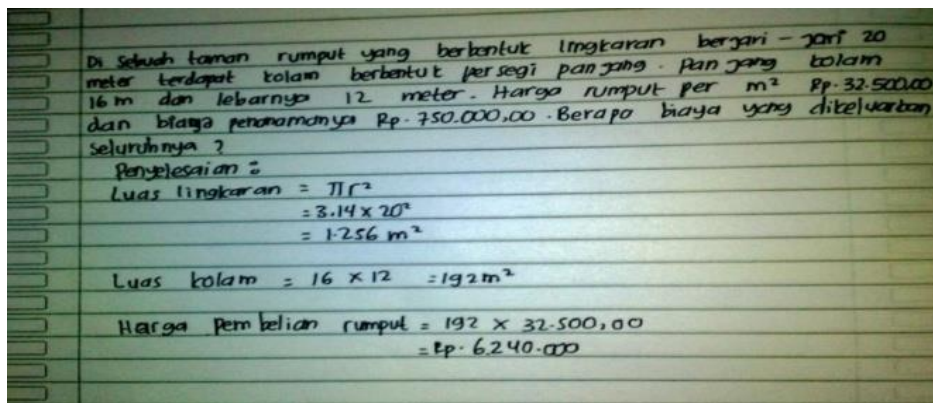 Di sebuah taman rumput yang berbentuk lingkaran berjari - jari 20
meter terdapat kolam berbentuk persegi panjang. Panjang kolam
16 m dan lebarnya 12 meter. Harga rumput per m² Rp. 32.500,00
dan biaya penanamanya Rp. 750.000,00. Berapa biaya yang dikeluarkan
seluruhnya ?
Penyelesaian :
Luas lingkaran = πr²
= 3.14 x 20²
= 1.256 m²
Luas kolam = 16 x 12 = 192 m²
Harga pembelian rumput = 192 x 32.500,00
= Rp. 6.240.000